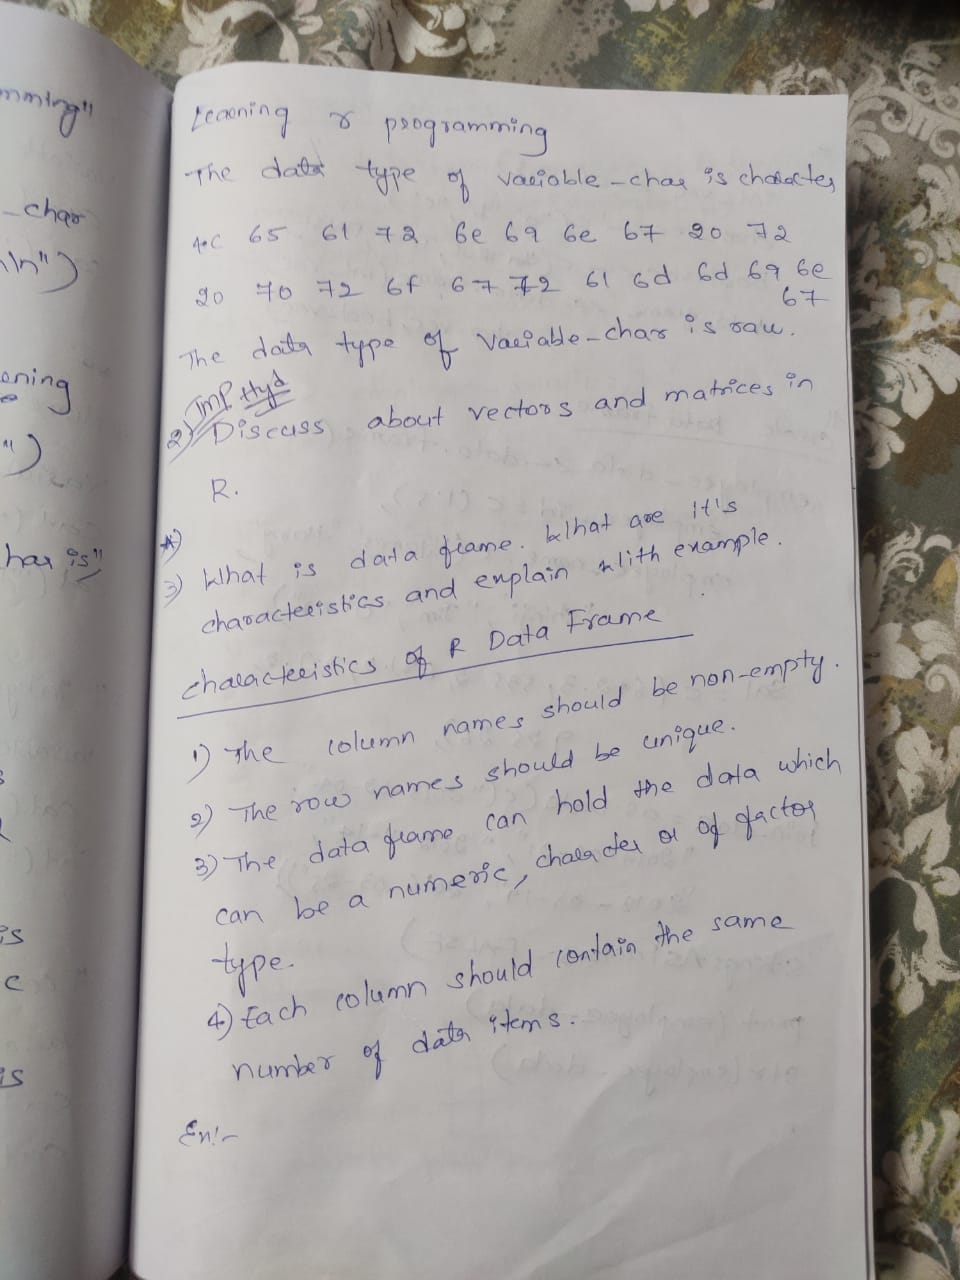 mming"
_char
\n")
ening
")
har is"
is
c
is
Learning r programming
The data type of variable_char is character
4c 65 61 72 6e 69 6e 67 20 72
20 70 72 6f 67 72 61 6d 6d 69 6e
67
The data type of Variable_char is raw.
Imp Hyd
2) Discuss about vectors and matrices in
R.
3) What is data frame. What are it's
characteristics and explain with example.
characteristics of R Data Frame
1) The column names should be non-empty.
2) The row names should be unique.
3) The data frame can hold the data which
can be a numeric, character or of factor
type.
4) Each column should contain the same
number of data items.
Ex:-